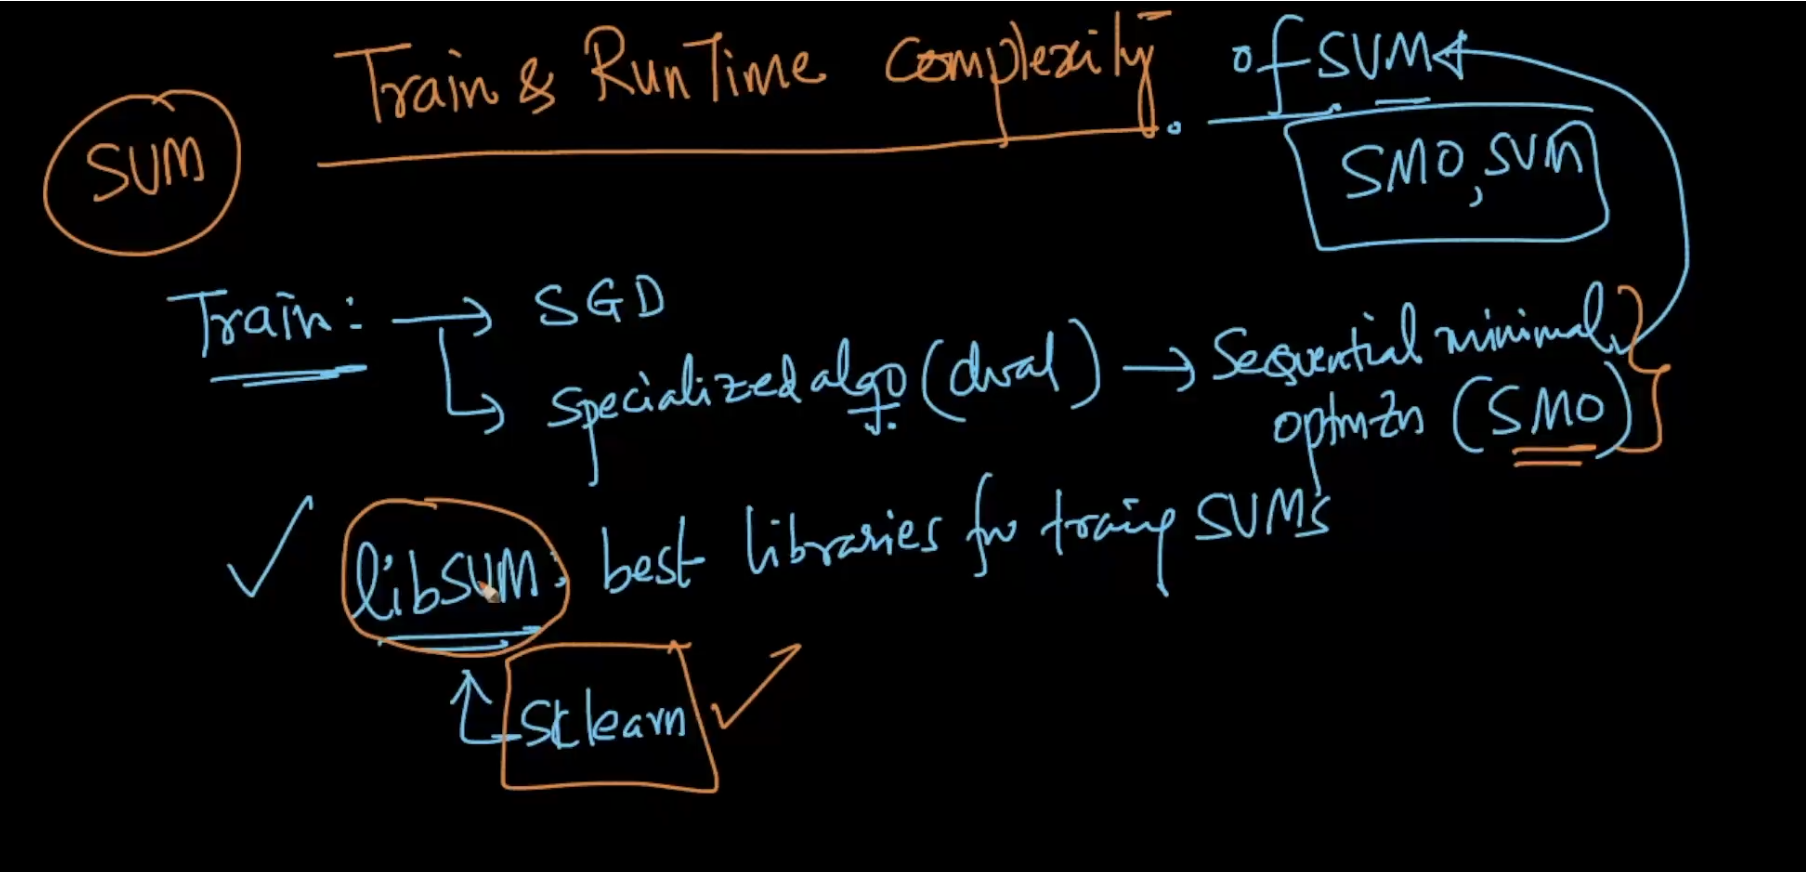 Train & Run Time Complexity. of SVM
SVM
SMO, SVM
Train: → SGD
↳ specialized algo (dual) → Sequential minimal
optmzn (SMO)
✓ libSVM: best libraries for traing SVM's
↑ Sklearn ✓